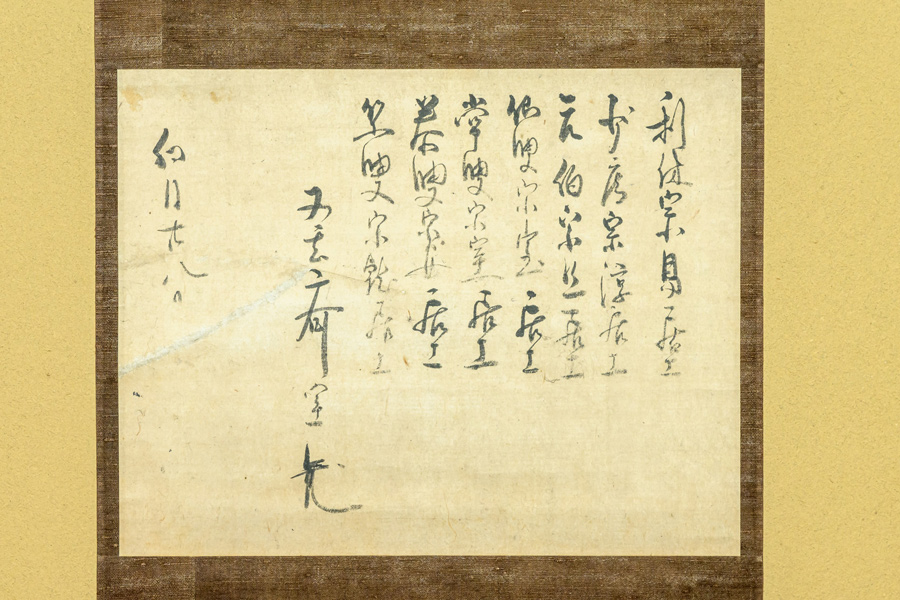 利休宗易居士
少庵宗淳居士
元伯宗旦居士
仙叟宗室居士
常叟宗室居士
泰叟宗安居士
竺叟宗乾居士
又玄斎
室
卯月廿八日